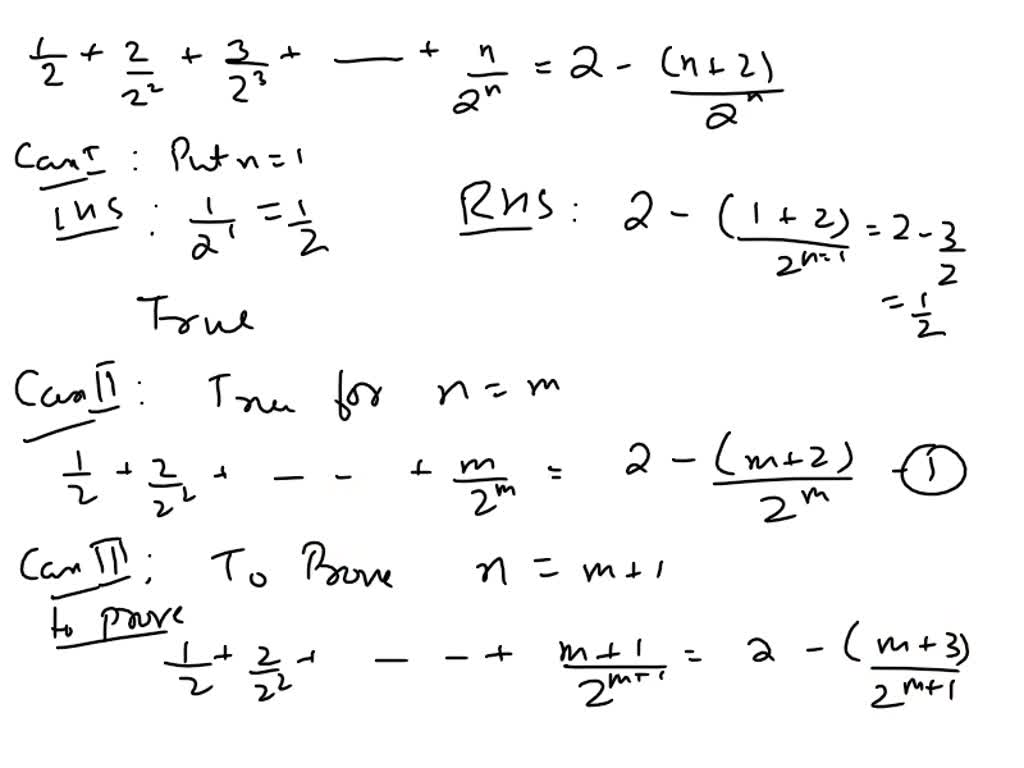 1/2 + 2/2² + 3/2³ + — + n/2ⁿ = 2 - (n+2)/2ⁿ
Case I : Put n = 1
LHS : 1/2¹ = 1/2 RHS : 2 - (1+2)/2ⁿ⁼¹ = 2 - 3/2
= 1/2
True
Case II : True for n = m
1/2 + 2/2² + - - + m/2ᵐ = 2 - (m+2)/2ᵐ - ①
Case III ; To Prove n = m+1
to prove
1/2 + 2/2² + - - + m+1/2ᵐ⁺¹ = 2 - (m+3)/2ᵐ⁺¹